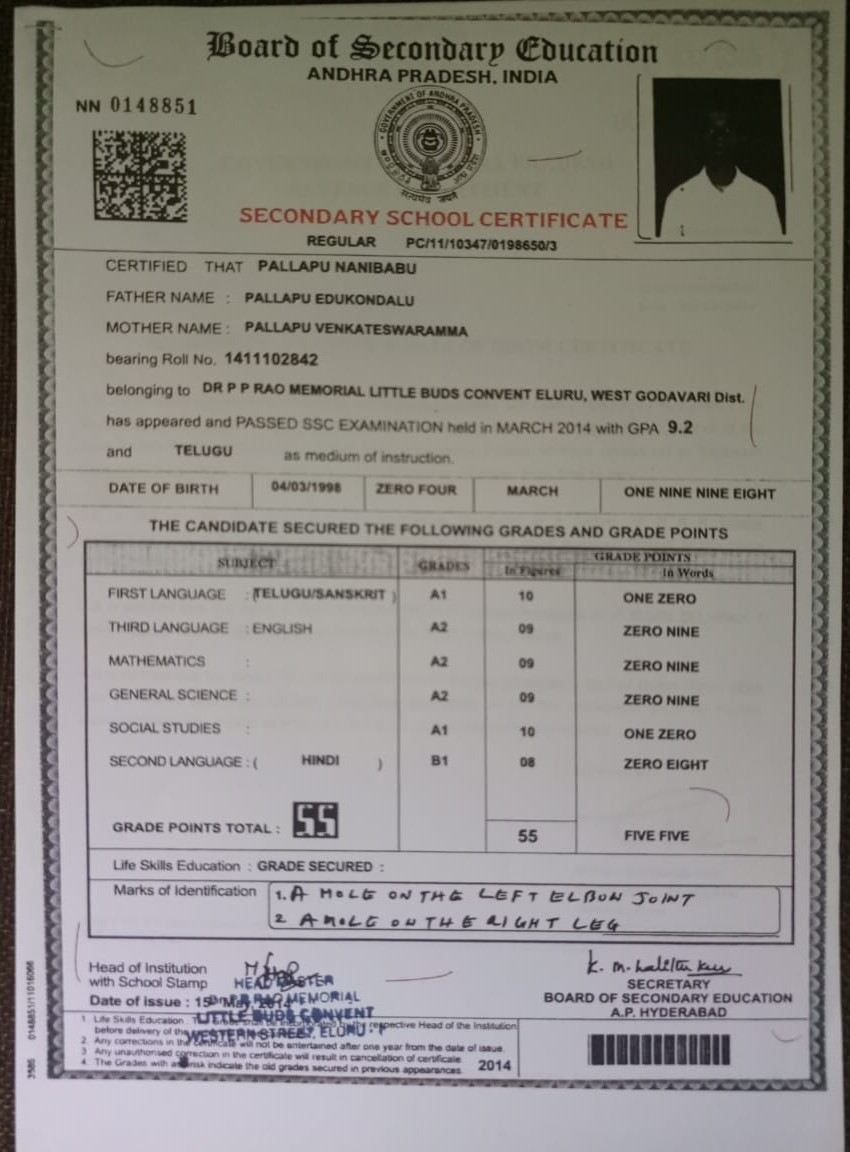 Board of Secondary Education
ANDHRA PRADESH, INDIA
NN 0148851
SECONDARY SCHOOL CERTIFICATE
REGULAR PC/11/10347/0198650/3
CERTIFIED THAT PALLAPU NANIBABU
FATHER NAME : PALLAPU EDUKONDALU
MOTHER NAME : PALLAPU VENKATESWARAMMA
bearing Roll No. 1411102842
belonging to DR P P RAO MEMORIAL LITTLE BUDS CONVENT ELURU, WEST GODAVARI Dist.
has appeared and PASSED SSC EXAMINATION held in MARCH 2014 with GPA 9.2
and TELUGU as medium of instruction.
DATE OF BIRTH 04/03/1998 ZERO FOUR MARCH ONE NINE NINE EIGHT
THE CANDIDATE SECURED THE FOLLOWING GRADES AND GRADE POINTS
SUBJECT GRADES GRADE POINTS
In Figures In Words
FIRST LANGUAGE : (TELUGU/SANSKRIT ) A1 10 ONE ZERO
THIRD LANGUAGE : ENGLISH A2 09 ZERO NINE
MATHEMATICS : A2 09 ZERO NINE
GENERAL SCIENCE : A2 09 ZERO NINE
SOCIAL STUDIES : A1 10 ONE ZERO
SECOND LANGUAGE : ( HINDI ) B1 08 ZERO EIGHT
GRADE POINTS TOTAL : 55 55 FIVE FIVE
Life Skills Education : GRADE SECURED :
Marks of Identification 1. A MOLE ON THE LEFT ELBOW JOINT
2 A MOLE ON THE RIGHT LEG
Head of Institution
with School Stamp
HEAD MASTER
Date of issue : 15 May, 2014
RAO MEMORIAL
LITTLE BUDS CONVENT
WESTERN STREET, ELURU
SECRETARY
BOARD OF SECONDARY EDUCATION
A.P. HYDERABAD
1. Life Skills Education respective Head of the Institution
before delivery of the
2. Any corrections in the certificate will not be entertained after one year from the date of issue.
3. Any unauthorised correction in the certificate will result in cancellation of certificate.
4. The Grades with asterisk indicate the old grades secured in previous appearances. 2014
3585 0148851/11016066